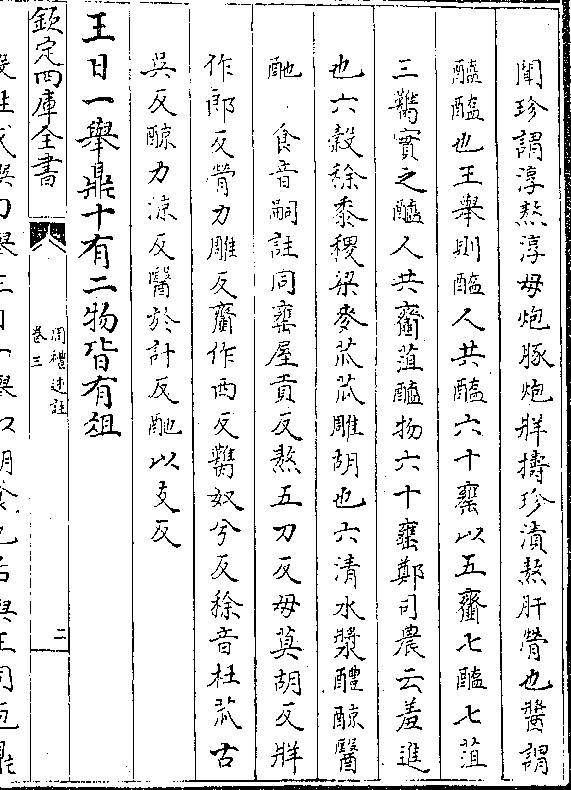 聞珍謂淳熬淳母炮豚炮牂擣珍漬熬肝膋也醬謂
醯醢也王舉則醢人共醢六十罋以五齏七醢七菹
三臡實之醯人共齏菹醯物六十罋鄭司農云羞進
也六穀稌黍稷粱麥苽苽雕胡也六清水漿醴䣼醫
酏 食音嗣註同罋屋貢反熬五刀反母莫胡反牂
作郎反膋力雕反齏作西反臡奴兮反稌音杜苽古
吳反䣼力涼反醫於計反酏以支反
王日一舉鼎十有二物皆有俎
欽定四庫全書
周禮述註
卷三
二